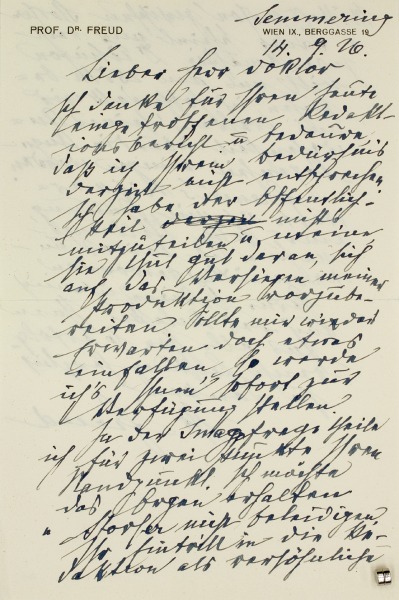 PROF. DR. FREUD
Semmering
WIEN IX., BERGGASSE 19
14. 9. 26.
Lieber Herr Doktor
Ich danke für Ihren heute
eingetroffenen Redakt-
ionsbericht u bedaure
daß ich Ihrem Bedürfnis
derzeit nicht entsprechen
Ich habe der Öffentlich-
keit nichts
mitzuteilen u meine
Sie thut gut daran, sich
auf das Versiegen meiner
Produktion vorzube-
reiten Sollte mir wieder
Erwarten doch etwas
einfallen so werde
ich's Ihnen sofort zur
Verfügung stellen.
In der frage theile
ich für zwei Punkte Ihren
Standpunkt. Ich möchte
das Organ erhalten
u nicht beleidigen
Ihr Eintritt in die Re-
daktion als versöhnliche